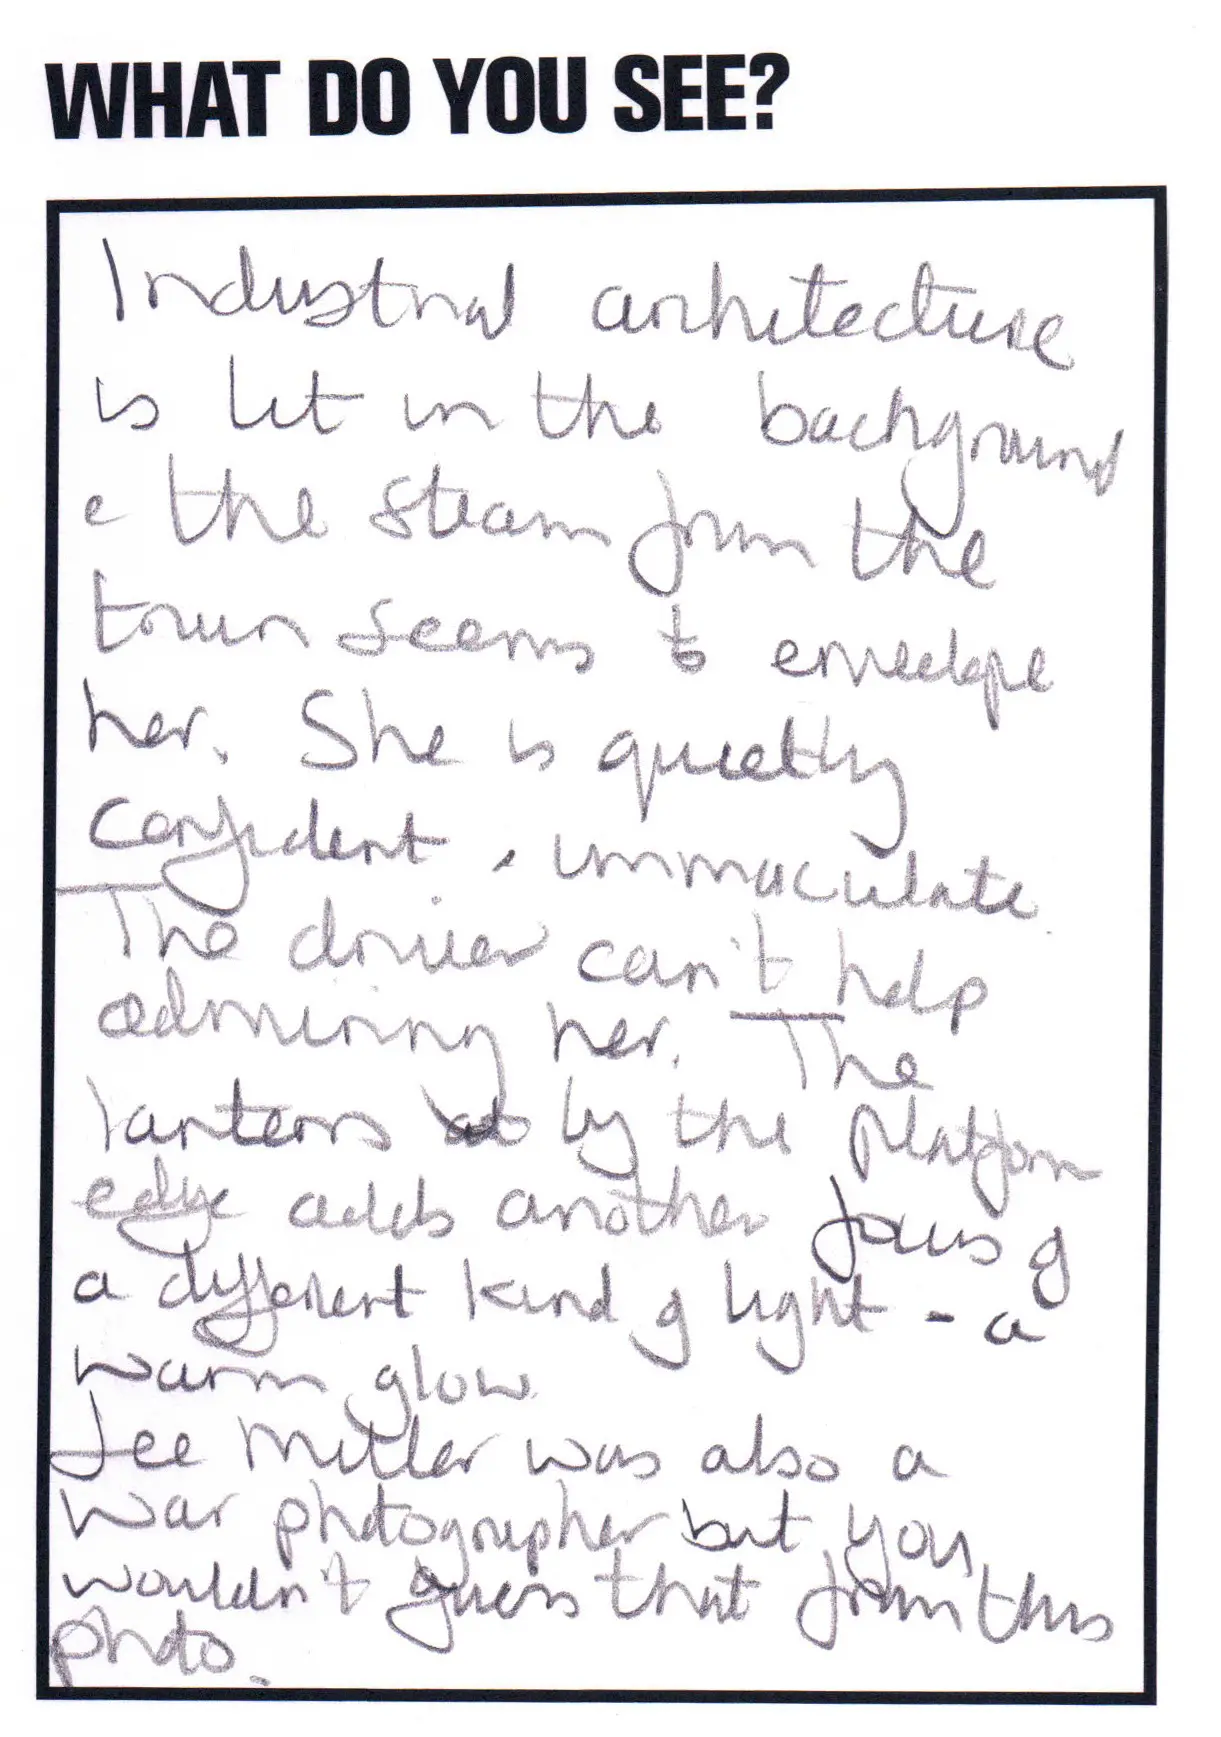 WHAT DO YOU SEE?
Industrial architecture
is lit in the background
& the steam from the
town seems to envelope
her. She is quietly
confident, immaculate.
The driver can't help
admiring her. The
lantern by the platform
edge adds another focus of
a different kind of light - a
warm glow
Lee Miller was also a
war photographer but you
wouldn't guess that from this
photo.